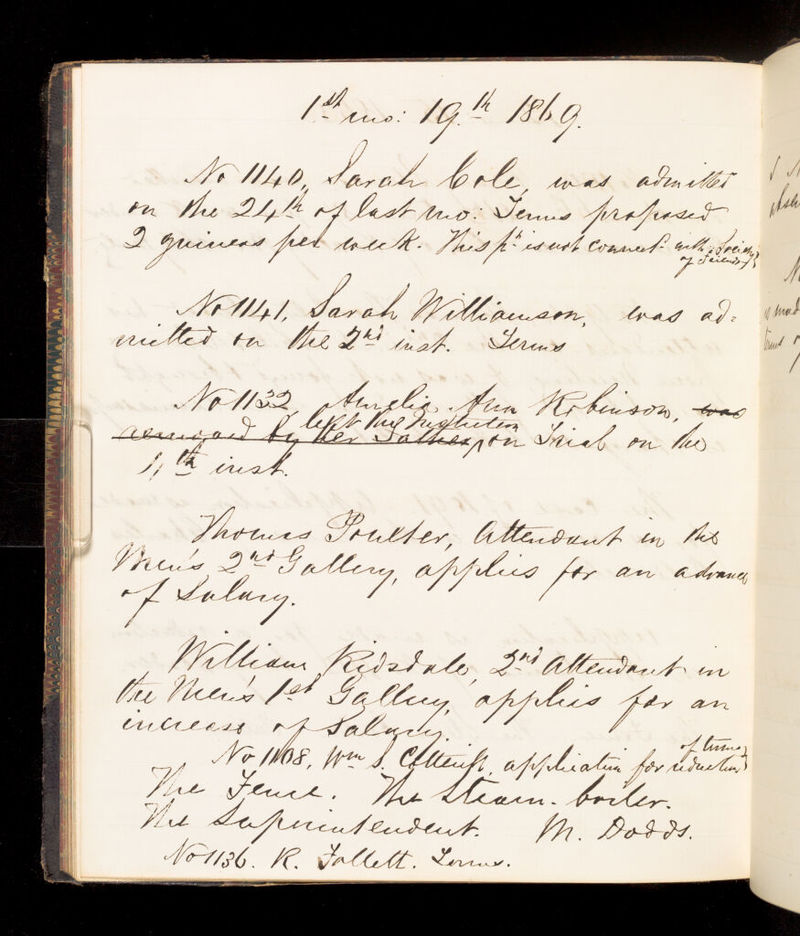 1st mo: 19th 1869.
No 1140, Sarah Cole, was admitted
on the 24th of last mo: Terms proposed
2 guineas per week. This pt is not connect. with Society
of Friends
No 1141, Sarah Williamson, was ad=
mitted on the 2nd inst. Terms
No 1132, Aurelia Ann Robinson, was
left the Institution
removed by her Father, on Trial on the
11th inst.
Thomas Poulter, Attendant in the
Men's 2nd Gallery, applies for an advance
of Salary.
William Ridsdale, 2nd Attendant in
the Men's 1st Gallery, applies for an
increase of Salary.
of terms
No 1108, Wm S. application for reduction
The Fence. The Steam-boiler.
The Superintendent. M. Dodds.
No 1136. R. Follett. Terms.